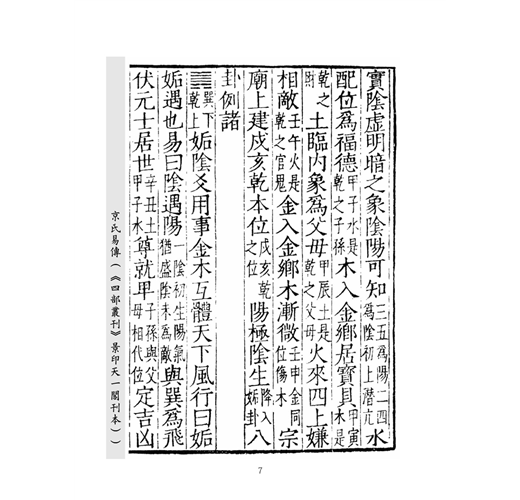 實陰虛明暗之象陰陽可知三五為陽二四為陰初上潛亢水
配位為福德甲子水是乾之子孫木入金鄉居寶貝甲寅木是
乾之財土臨內象為父母甲辰土是乾之父母火來四上嫌
相敵壬午火是乾之官鬼金入金鄉木漸微壬申金同位傷木宗
廟上建戌亥乾本位戌亥乾之位陽極陰生降入姤卦八
卦例諸
䷫巽下乾上姤陰爻用事金木互體天下風行曰姤
姤遇也易曰陰遇陽一陰初生陽氣猶盛陰未為敵與巽為飛
伏元士居世辛丑土甲子水尊就卑子孫與父母相代位定吉凶
京氏易傳（《四部叢刊》景印天一閣刊本））
7